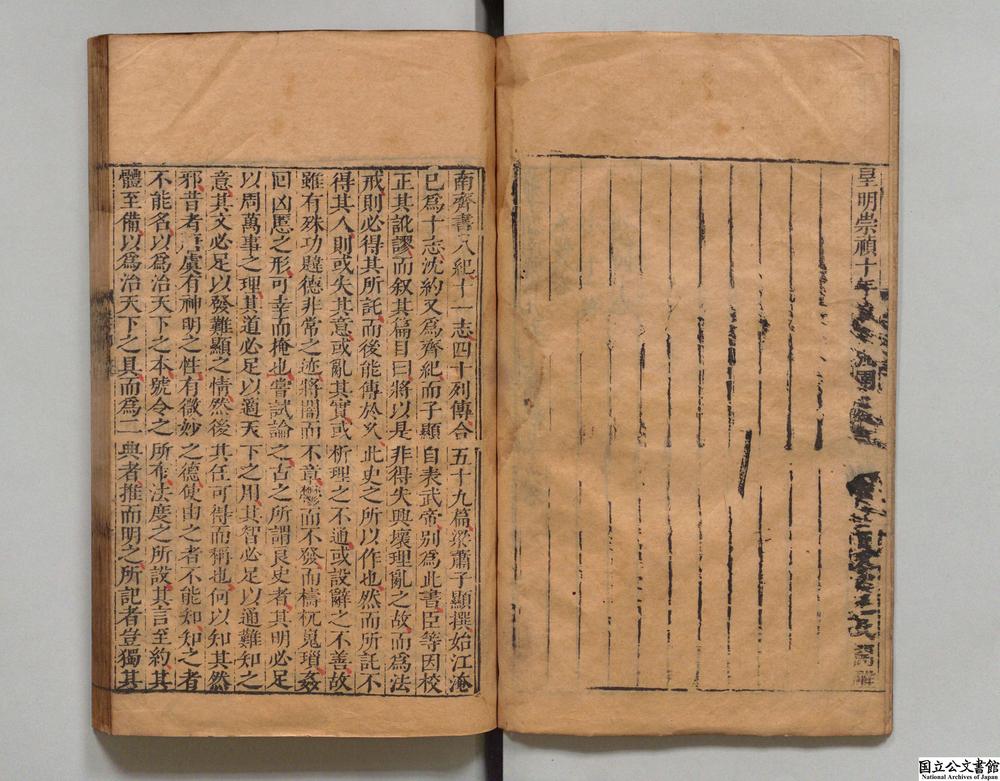 皇明崇禎十年
南齊書八紀十一志四十列傳合五十九篇梁蕭子顯撰始江淹
已爲十志沈約又爲齊紀而子顯自表武帝别爲此書臣等因校
正其訛謬而叙其篇目曰將以是非得失興壞理亂之故而爲法
戒則必得其所託而後能傳於久此史之所以作也然而所託不
得其人則或失其意或亂其實或析理之不通或設辭之不善故
雖有殊功韙德非常之迹將闇而不章欝而不發而檮杌嵬瑣姦
回凶慝之形可幸而掩也嘗試論之古之所謂良史者其明必足
以周萬事之理其道必足以適天下之用其智必足以通難知之
意其文必足以發難顯之情然後其任可得而稱也何以知其然
邪昔者唐虞有神明之性有微妙之德使由之者不能知知之者
不能名以爲治天下之本號令之所布法度之所設其言至約其
體至備以爲治天下之具而爲二典者推而明之所記者豈獨其
国立公文書館
National Archives of Japan